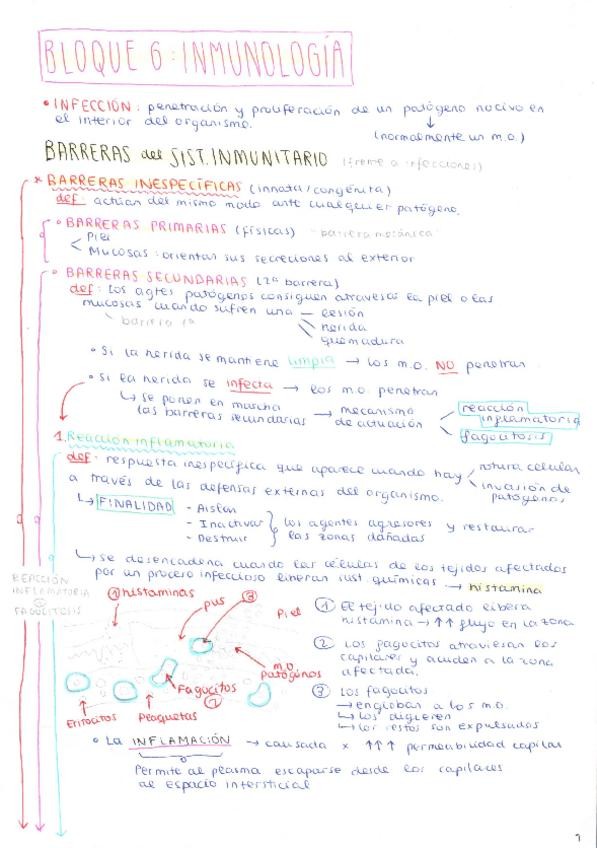 BLOQUE 6: INMUNOLOGÍA
• INFECCIÓN: penetración y proliferación de un patógeno nocivo en
el interior del organismo.
(normalmente un m.o.)
BARRERAS del SIST. INMUNITARIO (frente a infecciones)
* BARRERAS INESPECÍFICAS (innata/congénita)
def: actúan del mismo modo ante cualquier patógeno.
• BARRERAS PRIMARIAS (físicas) "barrera mecánica"
< Piel
Mucosas: orientan sus secreciones al exterior
• BARRERAS SECUNDARIAS (2ª barrera)
def: los agtes patógenos consiguen atravesar la piel o las
mucosas cuando sufren una — lesión
barrera 1ª
herida
quemadura
• Si la herida se mantiene limpia → los m.o. NO penetran
• Si la herida se infecta → los m.o. penetran
↳ se ponen en marcha → mecanismo
las barreras secundarias de actuación
reacción
inflamatoria
fagocitosis
1. Reacción inflamatoria
def: respuesta inespecífica que aparece cuando hay rotura celular
a través de las defensas externas del organismo. invasión de
patógenos
↳ FINALIDAD - Aislar
- Inactivar } los agentes agresores y restaurar
- Destruir las zonas dañadas
↳ se desencadena cuando las células de los tejidos afectados
por un proceso infeccioso liberan sust. químicas → histamina
REACCIÓN
INFLAMATORIA
FAGOCITOSIS
① histaminas
pus
③
Piel
m.o.
patógenos
Fagocitos
②
Eritrocitos
Plaquetas
① El tejido afectado libera
histamina → ↑↑ flujo en la zona
② Los fagocitos atraviesan los
capilares y acuden a la zona
afectada.
③ Los fagocitos
→ engloban a los m.o.
↳ los digieren
↳ los restos son expulsados
• La INFLAMACIÓN → causada x ↑↑↑ permeabilidad capilar
Permite al plasma escaparse desde los capilares
al espacio intersticial
1